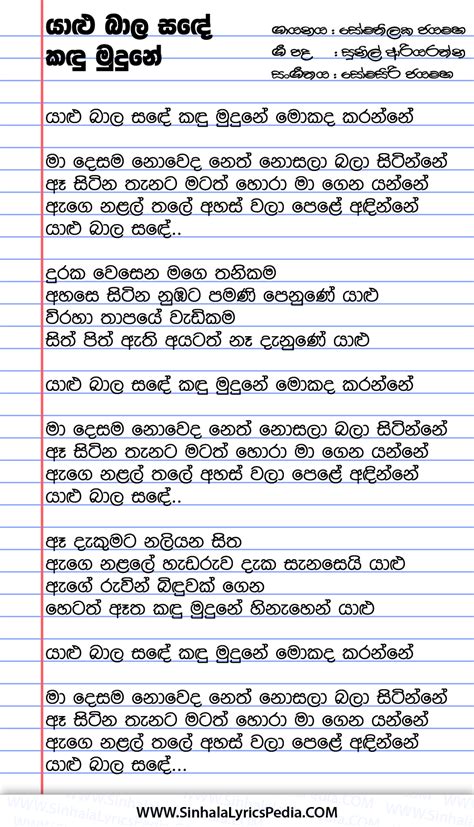 යාළු බාල සඳේ
කඳු මුදුනේ
ගායනය : සෝමතිලක ජයමහ
ගී පද : සුනිල් ආරියරත්න
සංගීතය : සෝමසිරි ජයමහ
යාළු බාල සඳේ කඳු මුදුනේ මොකද කරන්නේ
මා දෙසම නොවෙද නෙත් නොසලා බලා සිටින්නේ
ඈ සිටින තැනට මටත් හොරා මා ගෙන යන්නේ
ඇගෙ නළල් තලේ අහස් වලා පෙළේ අඳින්නේ
යාළු බාල සඳේ..
දුරක වෙසෙන මගෙ තනිකම
අහසෙ සිටින නුඹට පමණි පෙනුණේ යාළු
විරහා තාපයේ වැඩිකම
සිත් පිත් ඇති අයටත් නෑ දැනුණේ යාළු
යාළු බාල සඳේ කඳු මුදුනේ මොකද කරන්නේ
මා දෙසම නොවෙද නෙත් නොසලා බලා සිටින්නේ
ඈ සිටින තැනට මටත් හොරා මා ගෙන යන්නේ
ඇගෙ නළල් තලේ අහස් වලා පෙළේ අඳින්නේ
යාළු බාල සඳේ..
ඈ දැකුමට නලියන සිත
ඇගෙ නළලේ හැඩරුව දැක සැනසෙයි යාළු
ඇගේ රුවින් බිඳුවක් ගෙන
හෙටත් ඈත කඳු මුදුනේ හිනැහෙන් යාළු
යාළු බාල සඳේ කඳු මුදුනේ මොකද කරන්නේ
මා දෙසම නොවෙද නෙත් නොසලා බලා සිටින්නේ
ඈ සිටින තැනට මටත් හොරා මා ගෙන යන්නේ
ඇගෙ නළල් තලේ අහස් වලා පෙළේ අඳින්නේ
යාළු බාල සඳේ...
WWW.SinhalaLyricsPedia.COM